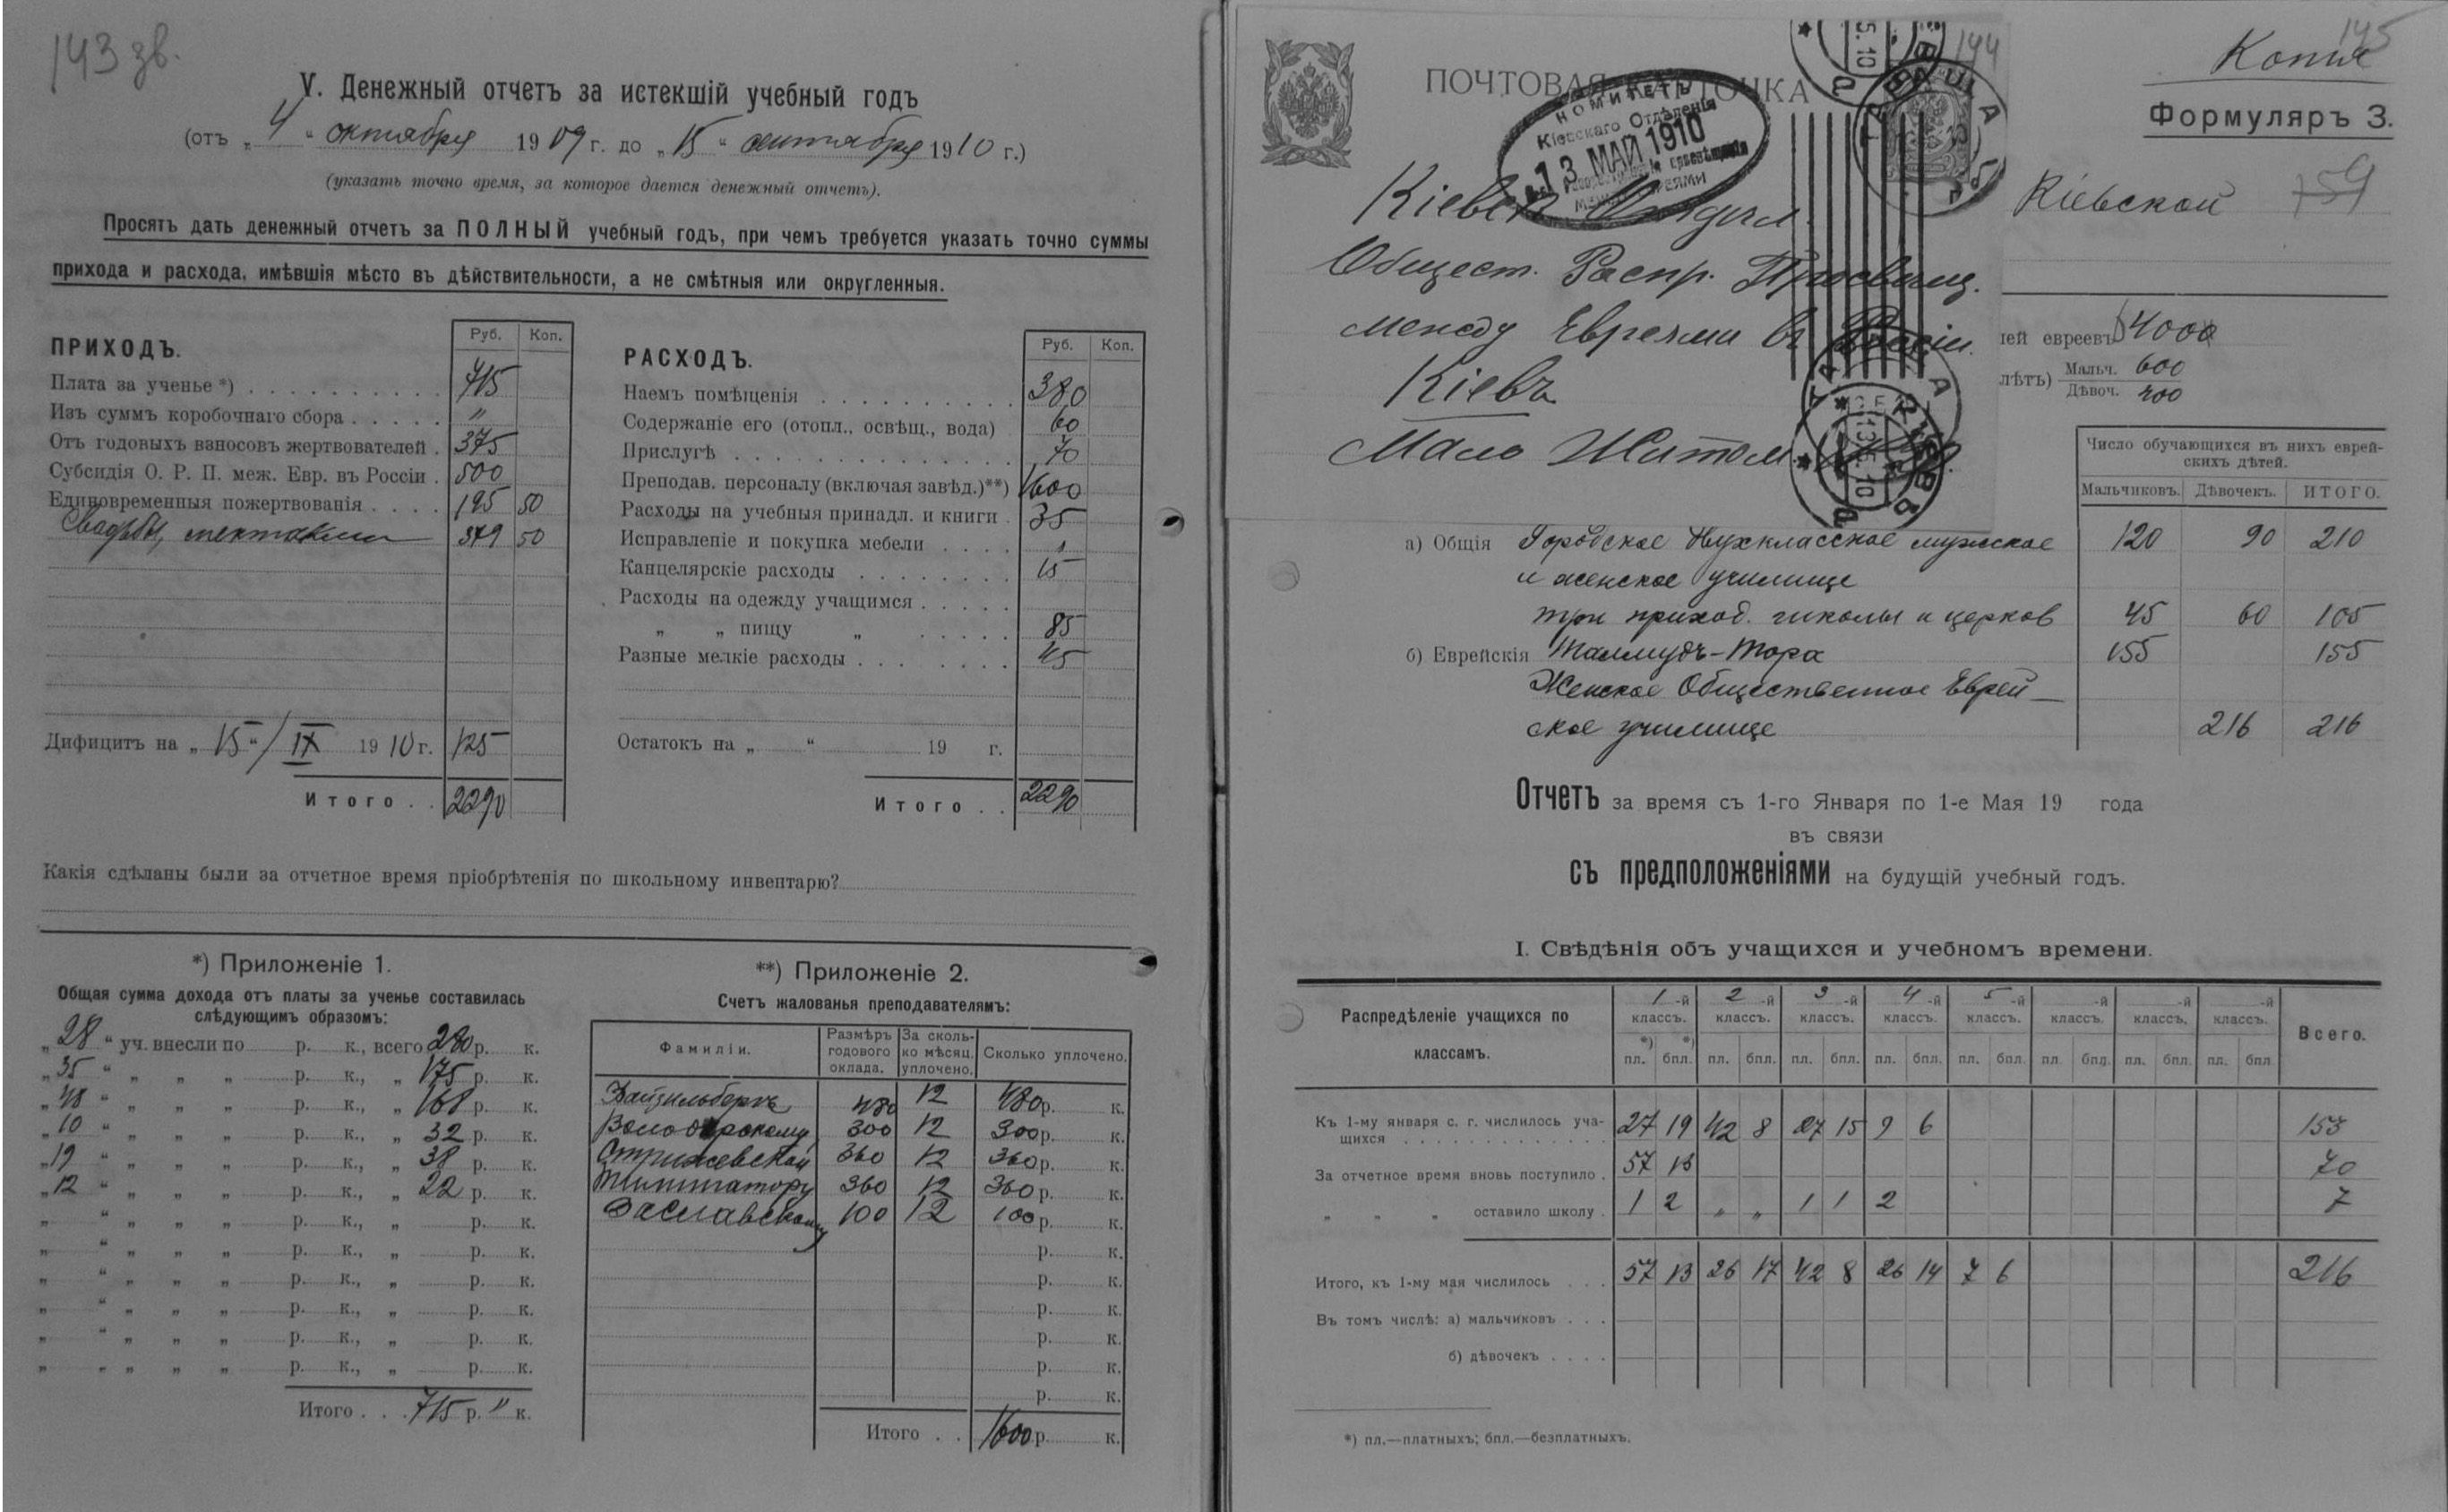 143 зв.
V. Денежный отчетъ за истекшій учебный годъ
(отъ „ 4 “ октября 1909 г. до „ 15 “ сентября 1910 г.)
(указать точно время, за которое дается денежный отчетъ).
Просятъ дать денежный отчетъ за ПОЛНЫЙ учебный годъ, при чемъ требуется указать точно суммы
прихода и расхода, имѣвшія мѣсто въ дѣйствительности, а не смѣтныя или округленныя.
ПРИХОДЪ. Руб. Коп.
Плата за ученье *) 715
Изъ суммъ коробочнаго сбора „
Отъ годовыхъ взносовъ жертвователей 375
Субсидія О. Р. П. меж. Евр. въ Россіи 500
Единовременныя пожертвованія 195 50
Свадьбы, 379 50
Дифицитъ на „ 15 “ / IX 1910 г. 125
Итого 2290
РАСХОДЪ. Руб. Коп.
Наемъ помѣщенія 380
Содержаніе его (отопл., освѣщ., вода) 60
Прислугѣ 70
Преподав. персоналу (включая завѣд.)**) 1600
Расходы на учебныя принадл. и книги 35
Исправленіе и покупка мебели
Канцелярскіе расходы 15
Расходы на одежду учащимся
„ „ пищу „ 85
Разные мелкіе расходы 45
Остатокъ на „ “ 19 г.
Итого 2290
Какія сдѣланы были за отчетное время пріобрѣтенія по школьному инвентарю?
*) Приложеніе 1.
Общая сумма дохода отъ платы за ученье составилась
слѣдующимъ образомъ:
„ 28 “ уч. внесли по р. к., всего 280 р. к.
„ 35 “ „ „ „ р. к., „ 175 р. к.
„ 48 “ „ „ „ р. к., „ 168 р. к.
„ 10 “ „ „ „ р. к., „ 32 р. к.
„ 19 “ „ „ „ р. к., „ 38 р. к.
„ 12 “ „ „ „ р. к., „ 22 р. к.
„ “ „ „ „ р. к., „ р. к.
„ “ „ „ „ р. к., „ р. к.
„ “ „ „ „ р. к., „ р. к.
„ “ „ „ „ р. к., „ р. к.
„ “ „ „ „ р. к., „ р. к.
„ “ „ „ „ р. к., „ р. к.
Итого 715 р. „ к.
**) Приложеніе 2.
Счетъ жалованья преподавателямъ:
Фамиліи. Размѣръ годового оклада. За сколько мѣсяц. уплочено. Сколько уплочено.
Вайзильбергъ 480 12 480 р. к.
Володарскому 300 12 300 р. к.
Стрижевской 360 12 360 р. к.
360 12 360 р. к.
Заславскому 100 12 100 р. к.
р. к.
р. к.
р. к.
р. к.
р. к.
р. к.
Итого 1600 р. к.
144
145
ПОЧТОВАЯ КАРТОЧКА
КОМИТЕТЪ
Кіевскаго Отдѣленія
13 МАЙ 1910
МЕЖДУ ЕВРЕЯМИ
Кіевск. Отдѣл.
Общест. Распр. Просвѣщ.
между Евреями въ Россіи.
Кіевъ
Мало Житом.
ТАРАЩА
Копія
Формуляръ 3.
Кіевской 159
лей евреевъ 4000
лѣтъ) Мальч. 600
Дѣвоч. 400
Число обучающихся въ нихъ еврей-
скихъ дѣтей.
Мальчиковъ. Дѣвочекъ. ИТОГО.
а) Общія Городское двухклассное мужское 120 90 210
и женское училище
три приход. школы и церков 45 60 105
б) Еврейскія Талмудъ-Тора 155 155
Женское Общественное Еврей-
ское училище 216 216
Отчетъ за время съ 1-го Января по 1-е Мая 19 года
въ связи
съ предположеніями на будущій учебный годъ.
I. Свѣдѣнія объ учащихся и учебномъ времени.
Распредѣленіе учащихся по классамъ. 1-й классъ. 2-й классъ. 3-й классъ. 4-й классъ. 5-й классъ. -й классъ. -й классъ. -й классъ. Всего.
*) пл. *) бпл. пл. бпл. пл. бпл. пл. бпл. пл. бпл. пл. бпл. пл. бпл. пл. бпл.
Къ 1-му января с. г. числилось уча-
щихся 27 19 42 8 27 15 9 6 153
За отчетное время вновь поступило 57 13 70
„ „ „ оставило школу 1 2 „ „ 1 1 2 7
Итого, къ 1-му мая числилось 57 13 26 17 42 8 26 14 7 6 216
Въ томъ числѣ: а) мальчиковъ
б) дѣвочекъ
*) пл.—платныхъ; бпл.—безплатныхъ.